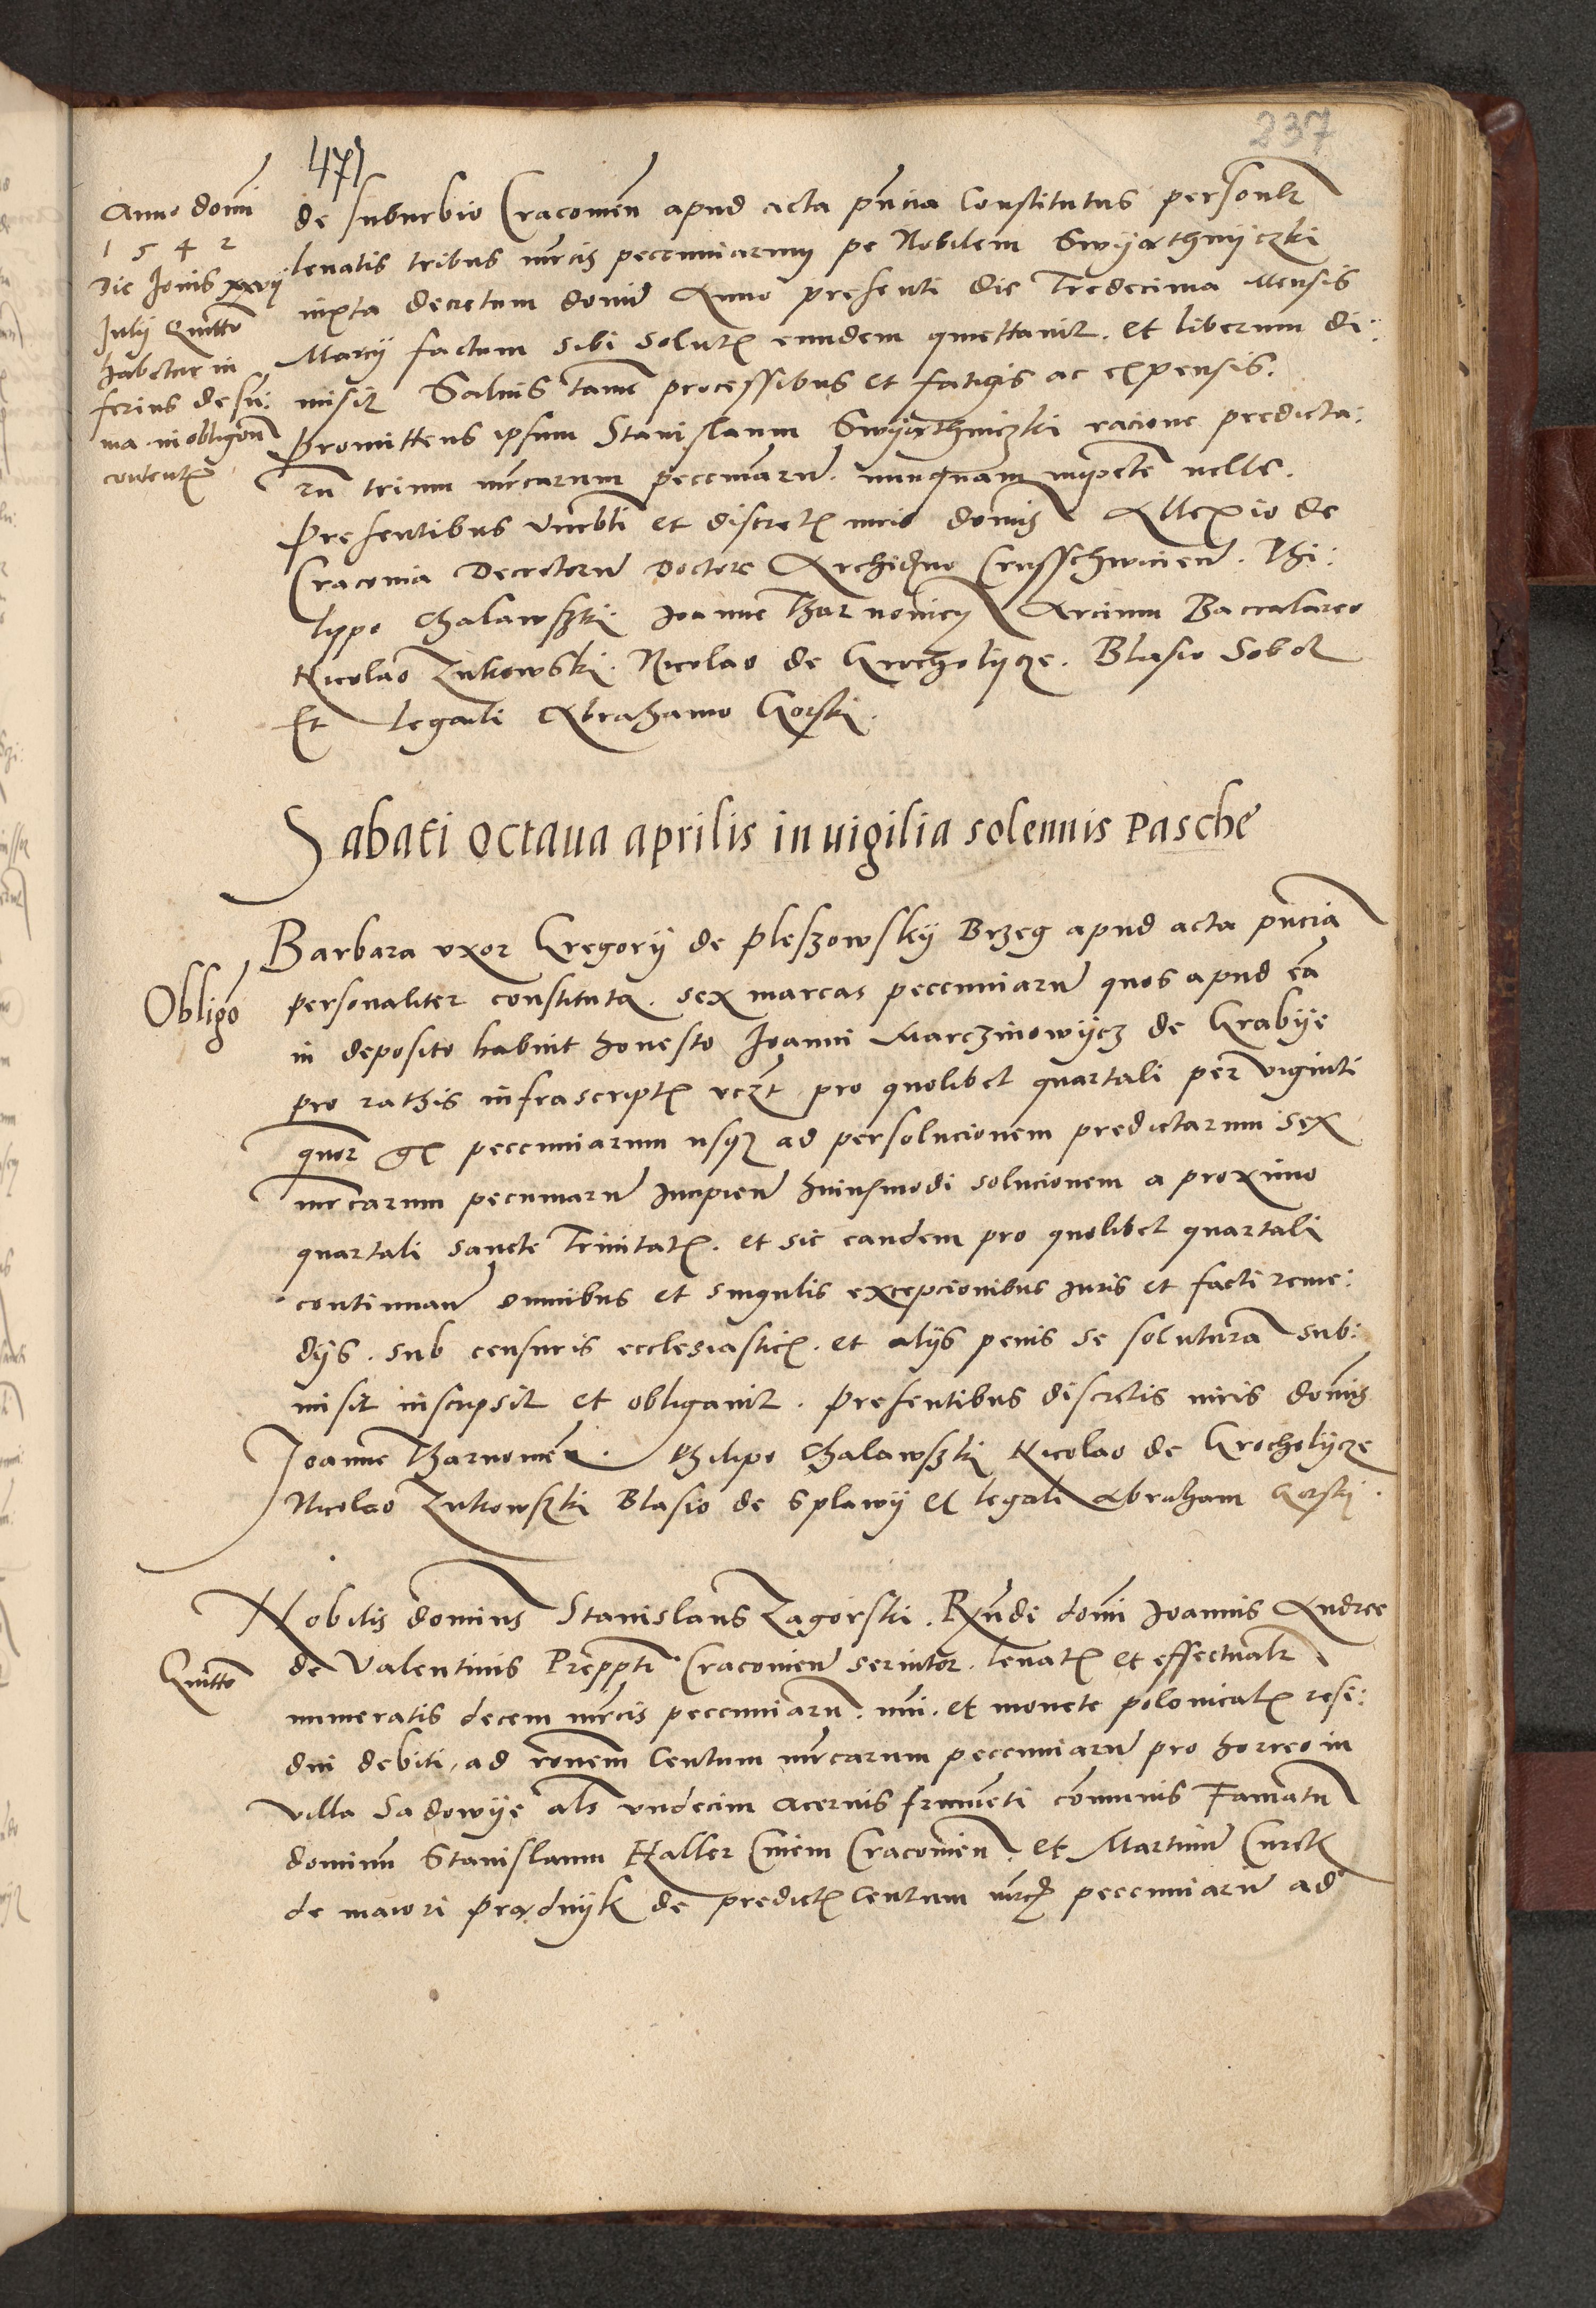 237
471
Anno domi
1542
Die Jovis xxvij
Julij Quitto
habetur in
ferius de su:
ma in obligon
contenta
de suburbio Cracovien apud acta pncia Constitutus personalr
levatis tribus mrcis pecenniarum pe Nobilem Swyathnyczki
iuxta decretum domi Anno presenti die Tredecima Mensis
Marcij factum sibi solutis eundem quiettavit. et liberum di:
misit Salvis tamen processibus et fatigis ac expensis.
Promittens ipsum Stanislaum Swyathniczki racione predicta:
ru trium mrcarum pecenniaru. nunquam impetere velle.
Presentibus Venrbli et discretis viris domis Allexio de
Cracovia Decretoru Doctore Archidno Crusschwicien. Phi:
lippo Chalawski Joanne Tharnovien Arcium Baccalareo
Nicolao Zukowski. Nicolao de Grocholycze. Blasio Sobol
Et legali Abrahamo Gorski.
Sabati octava aprilis in vigilia solennis Pasche
Obligo
Barbara uxor Gregorij de Pleszowsky Brzeg apud acta pncia
personaliter constituta. sex marcas pecenniaru quos apud ea
in deposito habuit honesto Joanni Marczinowycz de Grabye
pro rathis infrascriptis vczt pro quolibet quartali per viginti
quor gs pecenniarum usqz ad persolucionem predictarum sex
mrcarum pecuniaru Incipien huiusmodi solucionem a proximo
quartali sancte Trinitatis. et sic eandem pro quolibet quartali
continuan omnibus et singulis excepcionibus Juris et facti reme:
dijs. sub censuris ecclesiasticis. et alijs penis se solutura sub:
misit inscripsit et obligavit. Presentibus discretis viris domis
Joanne Tharnovien. Philipo Chalawski Nicolao de Grocholycze
Nicolao Zukowski Blasio de Splawy et legali Abraham Gorski.
Quitto
Nobilis dominus Stanislaus Zagorski. Rvndi domi Joannis Andree
de Valentinis Preppti Cracovien servitor. levatis et effectualr
numeratis decem mrcis pecenniaru. nui. et monete polonicalis resi:
dui debiti, ad ronem Centum mrcarum pecenniaru pro horreo in
villa Sadowye als undecim acervis frumenti communis Famatu
dominum Stanislaum Haller Civem Cracovien. et Martinu Curek
de maiori Pradnyk de predictis Centum mrcis pecenniaru ad